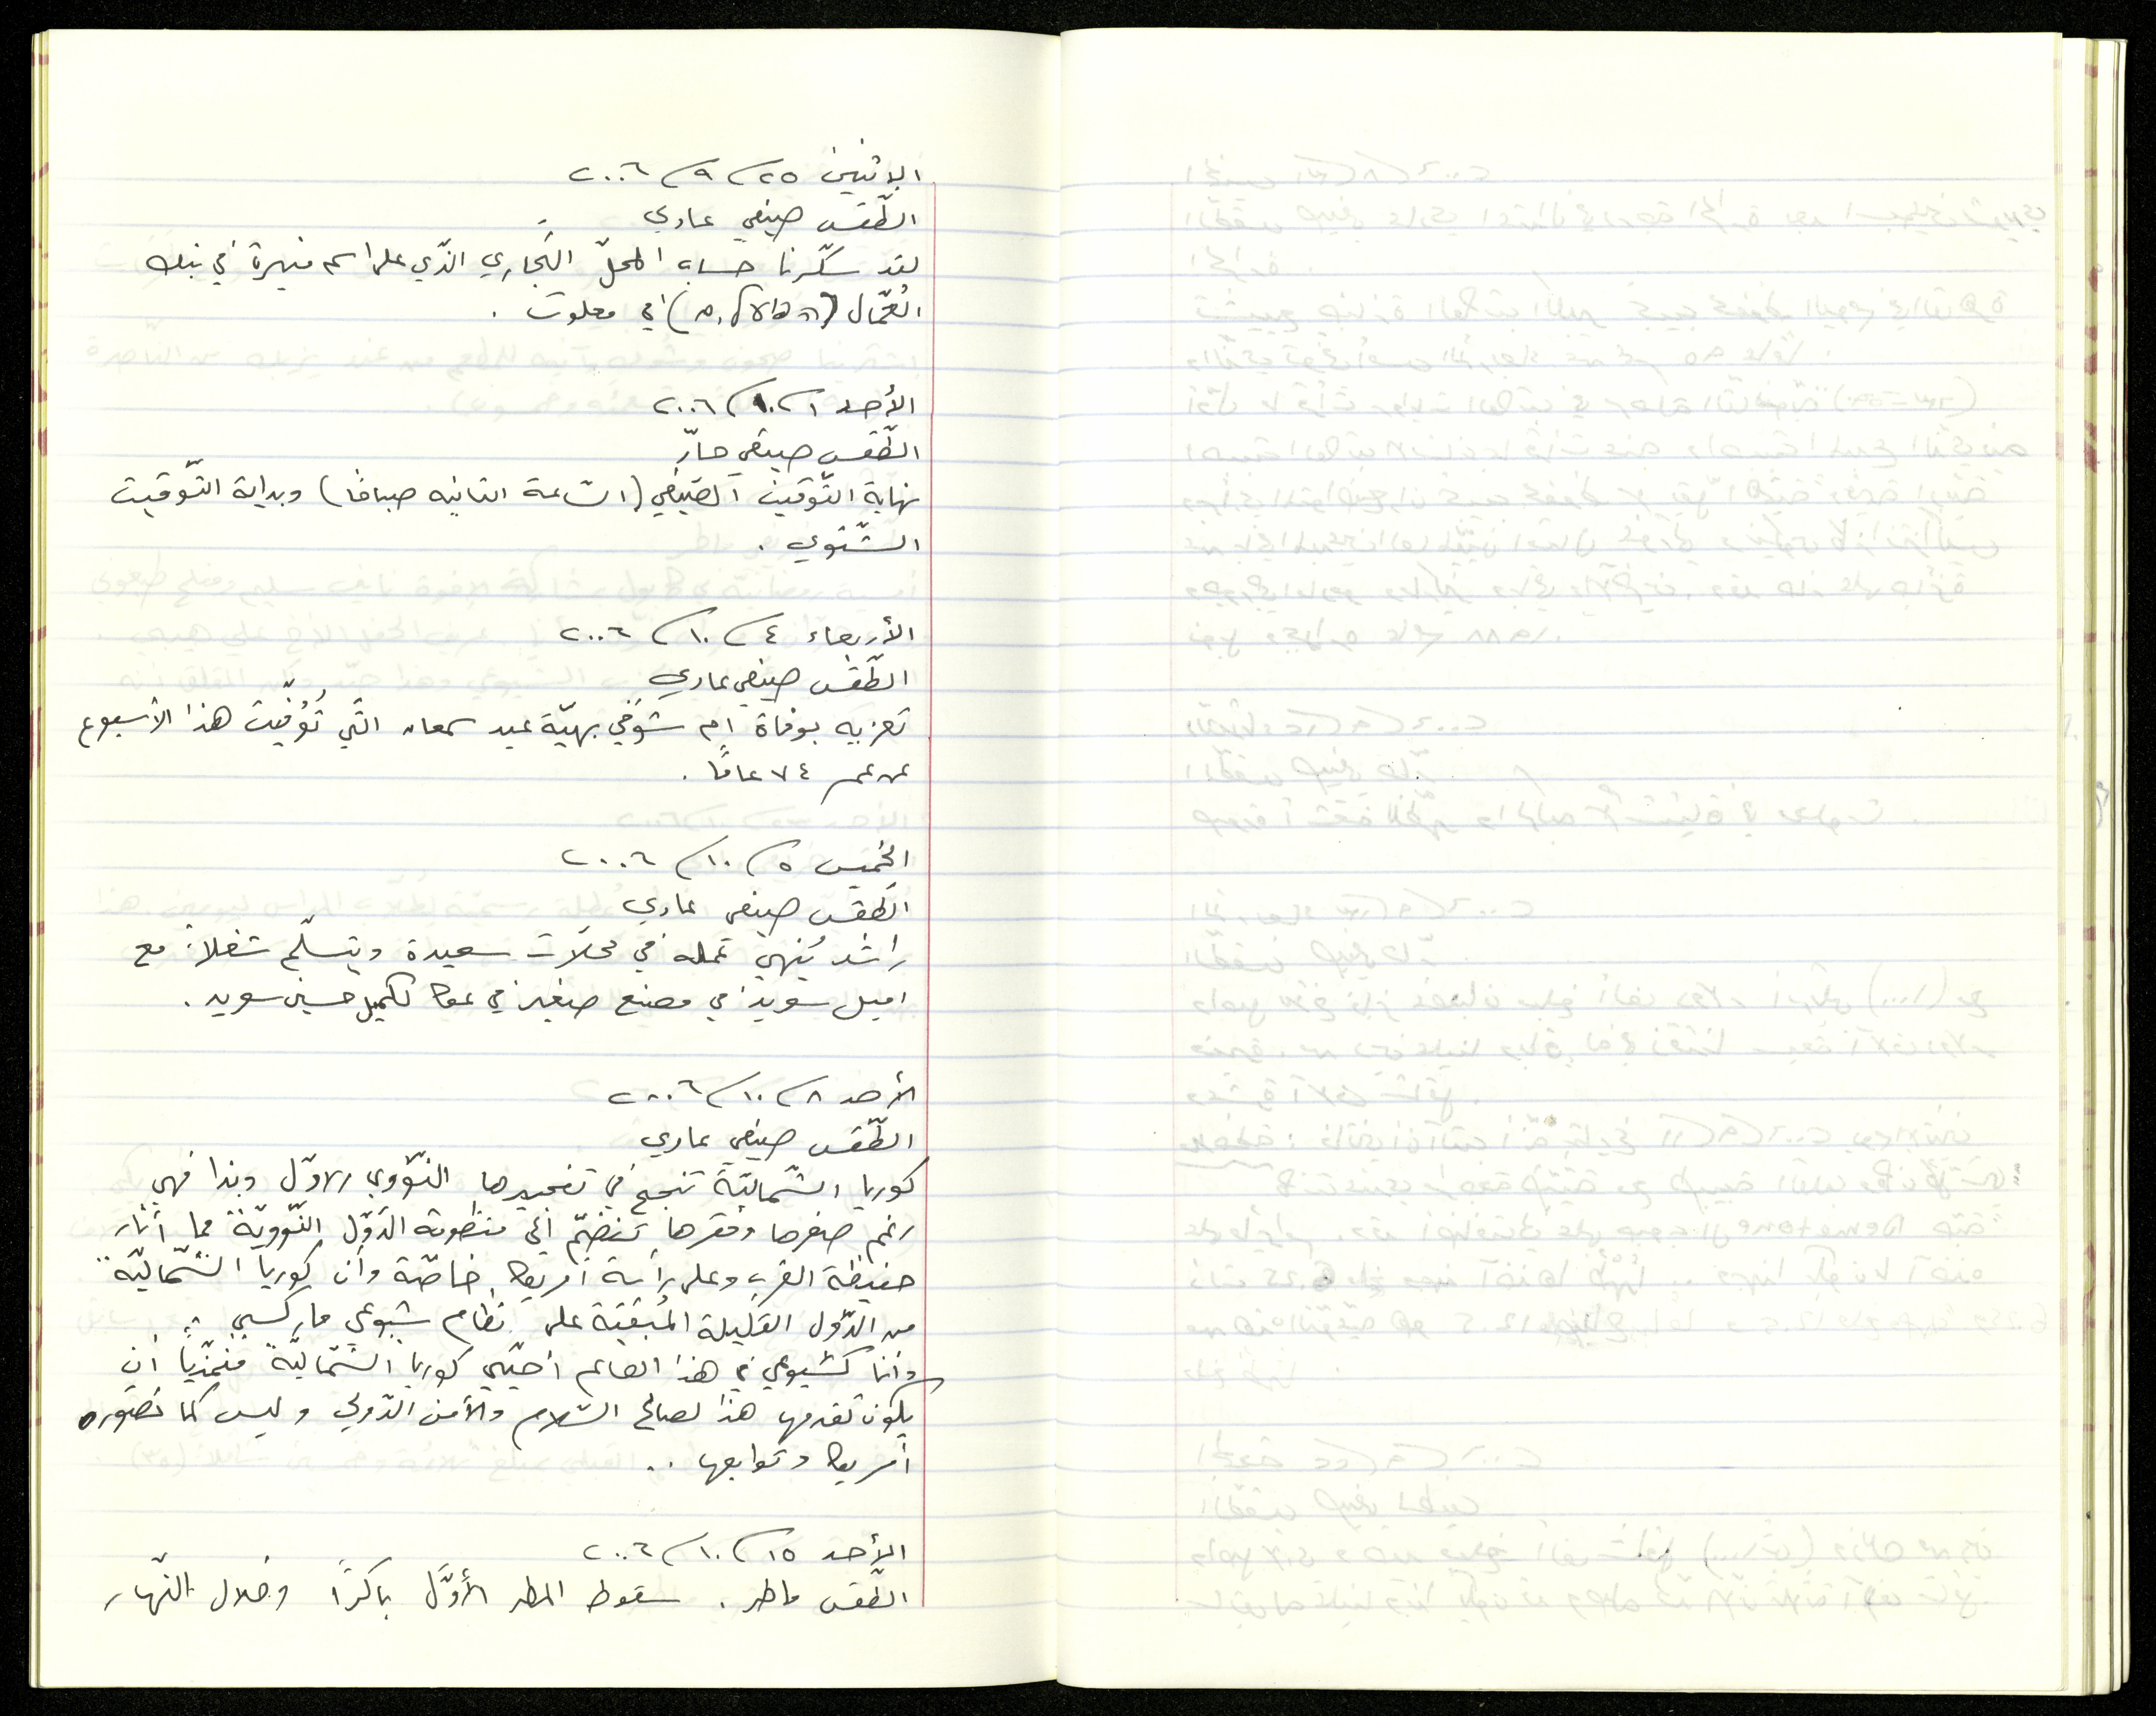 الإثنين ٢٥/٩/٢٠٠٦
الطّقس صيفي عادي
لقد سكّرنا حساب المحلّ التجاري الذّي على اسم منيرة في بنك
العُمّال (הפועלים) في معلوت .
الأحد ١/١٠/٢٠٠٦
الطّقس صيفي حارّ
نهاية التّوقيت الصّيفي (السّاعة الثانيه صباحًا) وبداية التّوقيت
الشّتوي .
الأربعاء ٤/١٠/٢٠٠٦
الطّقس صيفي عادي
تعزيه بوفاة إم شوقي بهيّة عيد سمعان التّي تُوُفّيت هذا الأسبوع
عن عمر ٧٤ عامًا .
الخميس ٥/١٠/٢٠٠٦
الطّقس صيفي عادي
راشد يُنهي عمله في محلّات سعيدة ويتسلّم شغلاً مع
اميل سويد في مصنع صغير في عكا لكميل حسين سويد .
الأحد ٨/١٠/٢٠٠٦
الطّقس صيفي عادي
كوريا الشّماليّة تنجح في تفجيرها النّووي الاوّل وبذا فهي
رغم صغرها وفقرها تنضمّ الى منظومة الدّوَل النّوويّة مما أثار
حفيظة الغرب وعلى رأسه أمريكا خاصّة وأن كوريا الشّماليّة
من الدّول القليلة المُبقيَة على نظام شيوعي ماركسي ..
وأنا كشيوعي في هذا العالم أحيّي كوريا الشّماليّة متمنّيًا أن
يكون تقدمها هذا لصالح السّلام والأمن الدّولي وليس كما تصوره
أمريكا وتوابعها ..
الأحد ١٥/١٠/٢٠٠٦
الطّقس ماطر . سقوط المطر الأوّل باكرًا وخلال النّهار